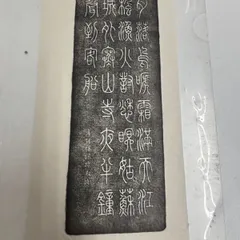 月落烏啼霜滿天江
楓漁火對愁眠姑蘇
城外寒山寺夜半鐘
聲到客船